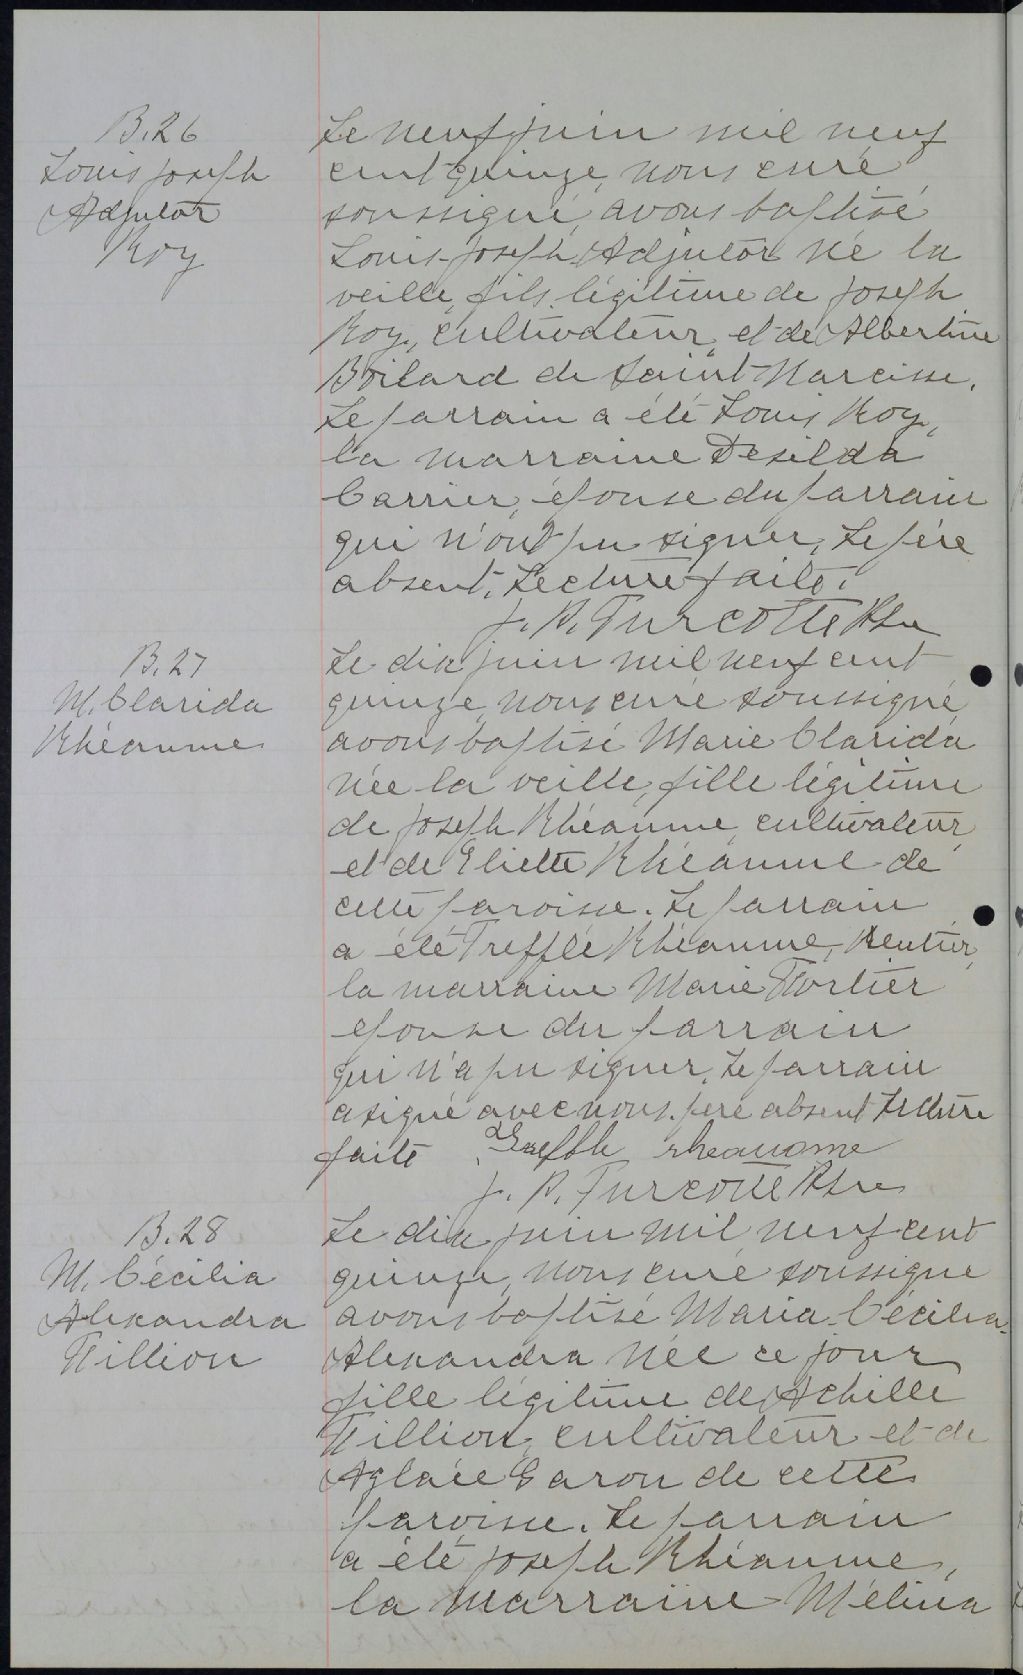 B.26
Louis Joseph
Adjutor
Roy
Le neuf juin mil neuf
cent quinze, nous curé
soussigné, avons baptisé
Louis-Joseph-Adjutor né la
veille, fils légitime de Joseph
Roy, cultivateur, et de Albertine
Boilard de Saint-Narcisse.
Le parrain a été Louis Roy,
la marraine Desilda
Carrier, épouse du parrain
qui n'ont pu signer, Le père
absent. Lecture faite.
J. A. Turcotte Ptre
B.27
M. Clarida
Rhéaume
Le dix juin mil neuf cent
quinze, nous curé soussigné
avons baptisé Marie Clarida
née la veille, fille légitime
de Joseph Rhéaume, cultivateur,
et de Eliette Rhéaume de
cette paroisse. Le parrain
a été Trefflé Rhéaume, Rentier,
la marraine Marie Fortier
épouse du parrain
qui n'a pu signer. Le parrain
a signé avec nous. père absent Lecture
faite rheaume
J. A. Turcotte Ptre
B.28
M. Cécilia
Alexandra
Fillion
Le dix juin mil neuf cent
quinze, nous curé soussigné
avons baptisé Maria-Cécilia-
Alexandra née ce jour
fille légitime de Achille
Fillion, cultivateur et de
Aglaée Garon de cette
paroisse. Le parrain
a été Joseph Rhéaume,
la marraine Mélina